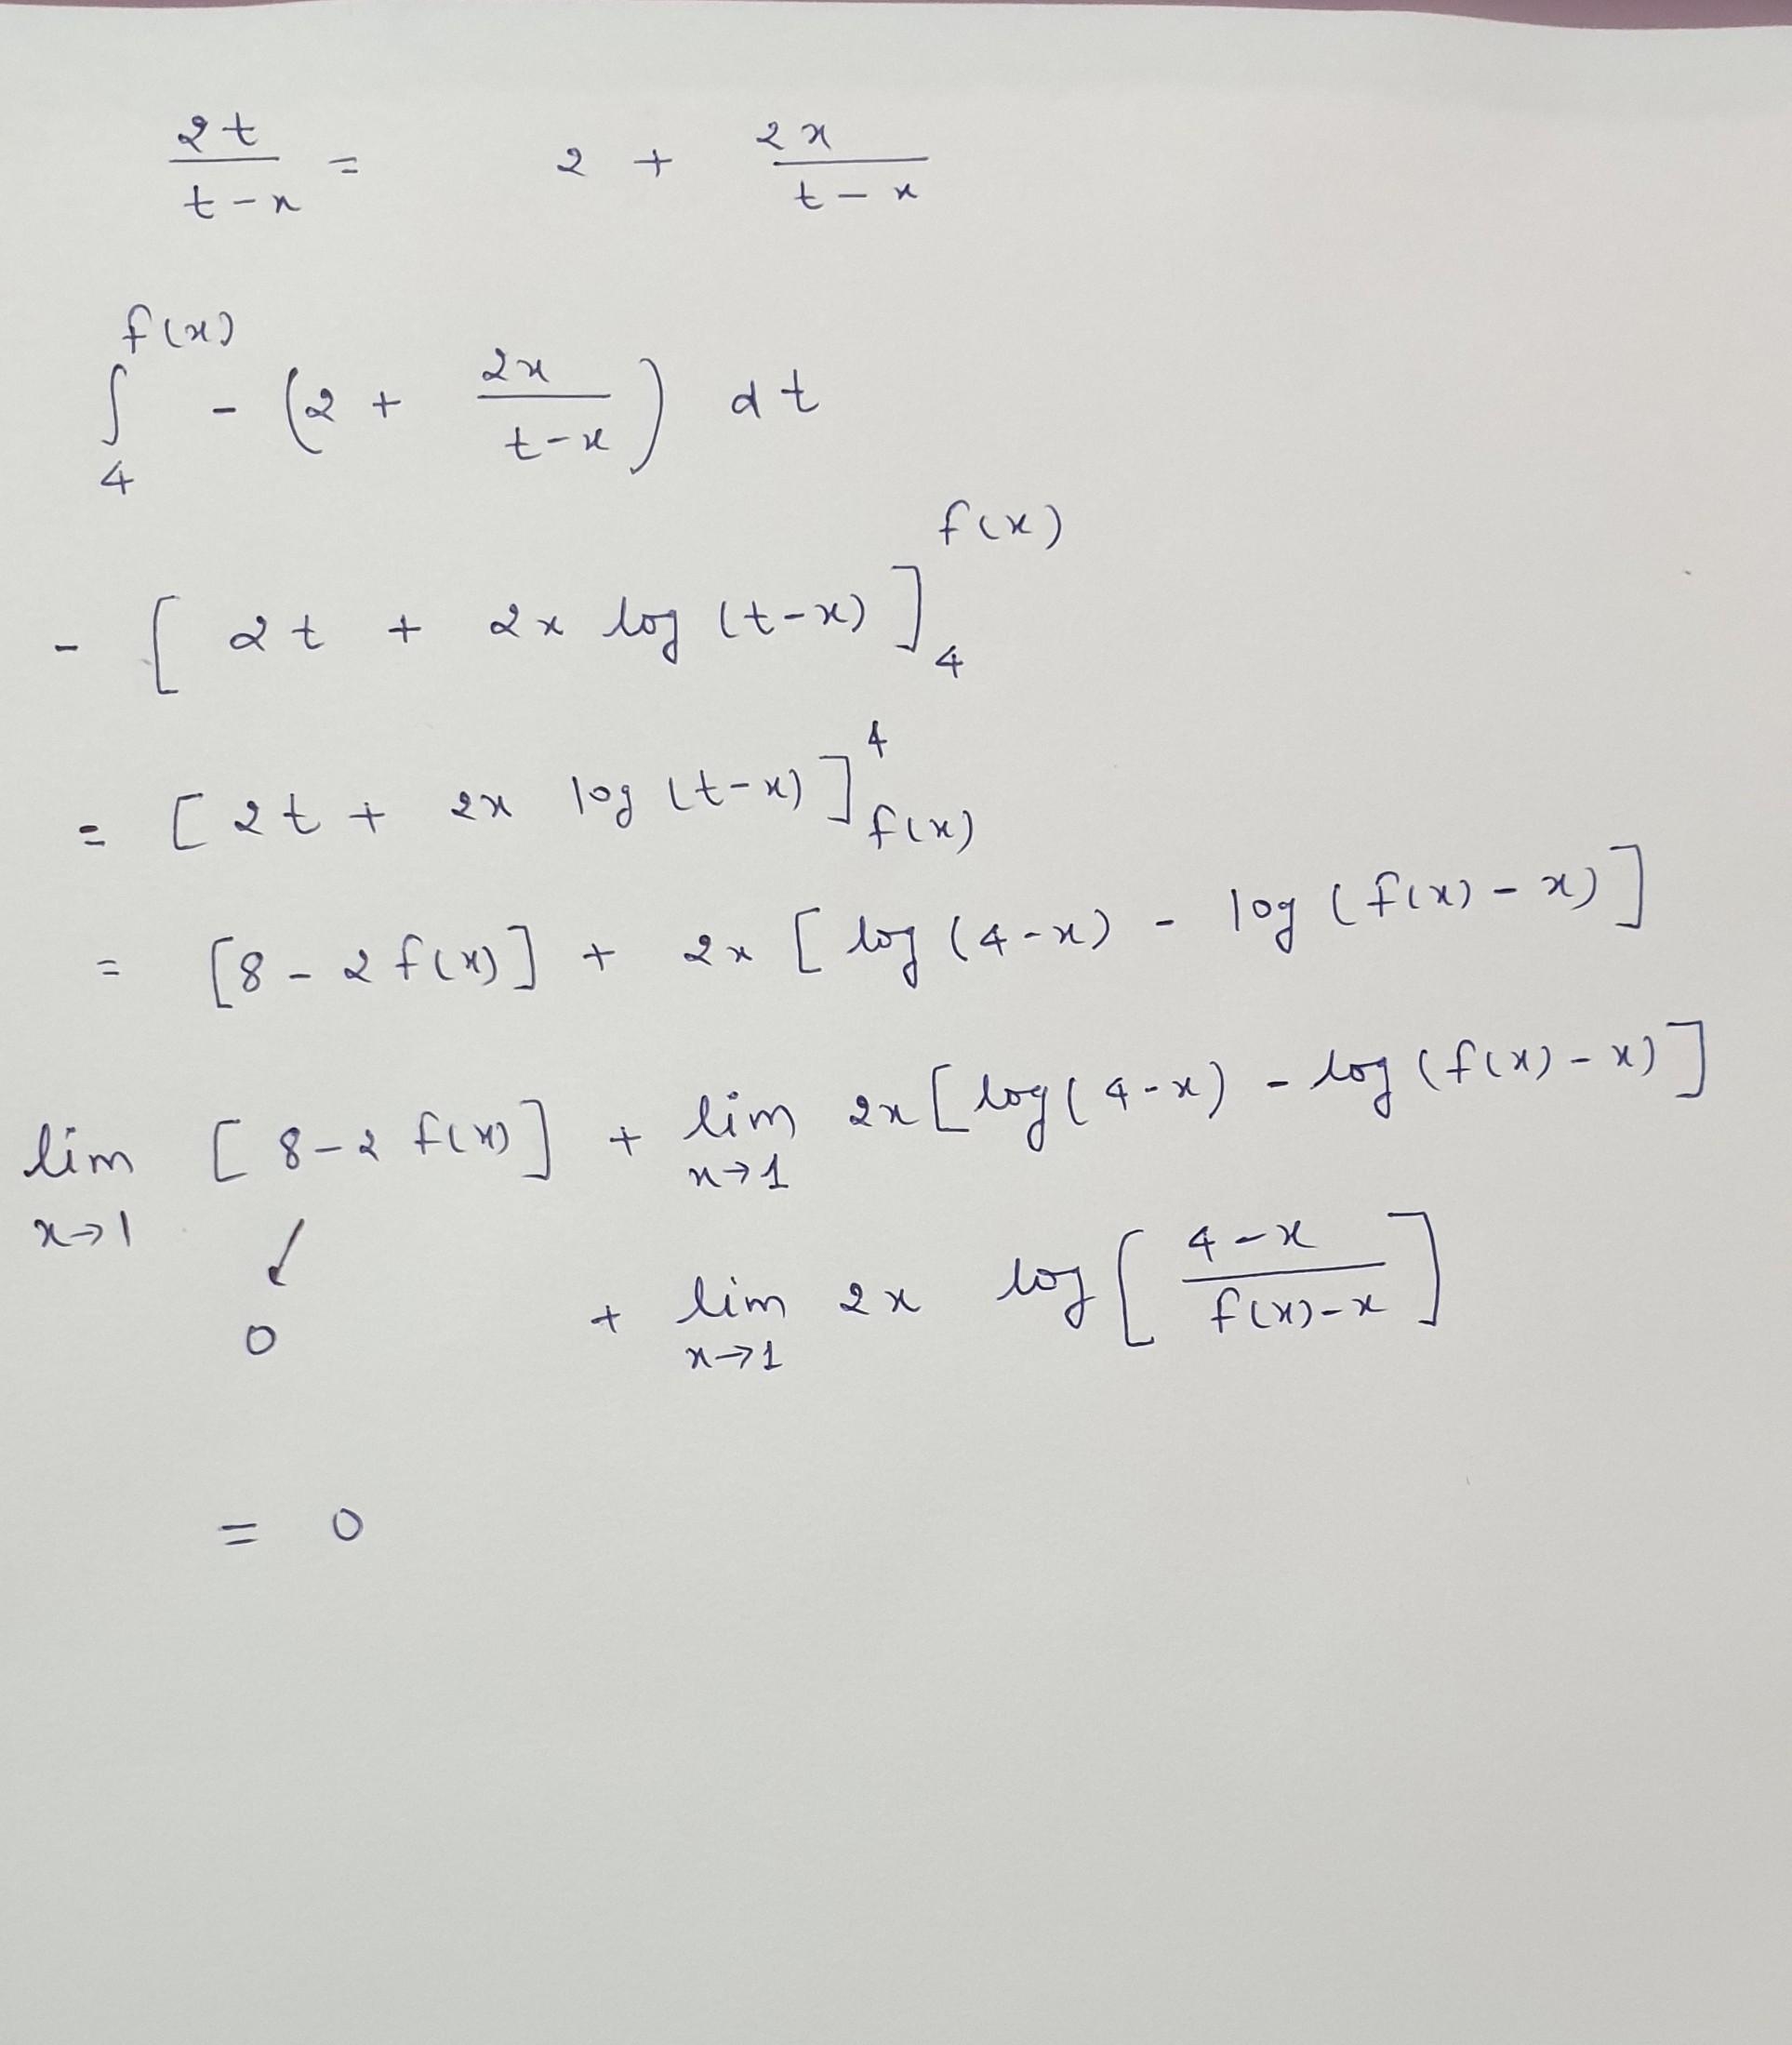 2t/(t-x) = 2 + 2x/(t-x)
∫_4^{f(x)} - (2 + 2x/(t-x)) dt
- [2t + 2x log (t-x)]_4^{f(x)}
= [2t + 2x log (t-x)]_{f(x)}^4
= [8 - 2f(x)] + 2x [log (4-x) - log (f(x) - x)]
lim_{x→1} [8 - 2 f(x)] + lim_{x→1} 2x [log (4-x) - log (f(x) - x)]
↓
0 + lim_{x→1} 2x log [(4-x)/(f(x)-x)]
= 0